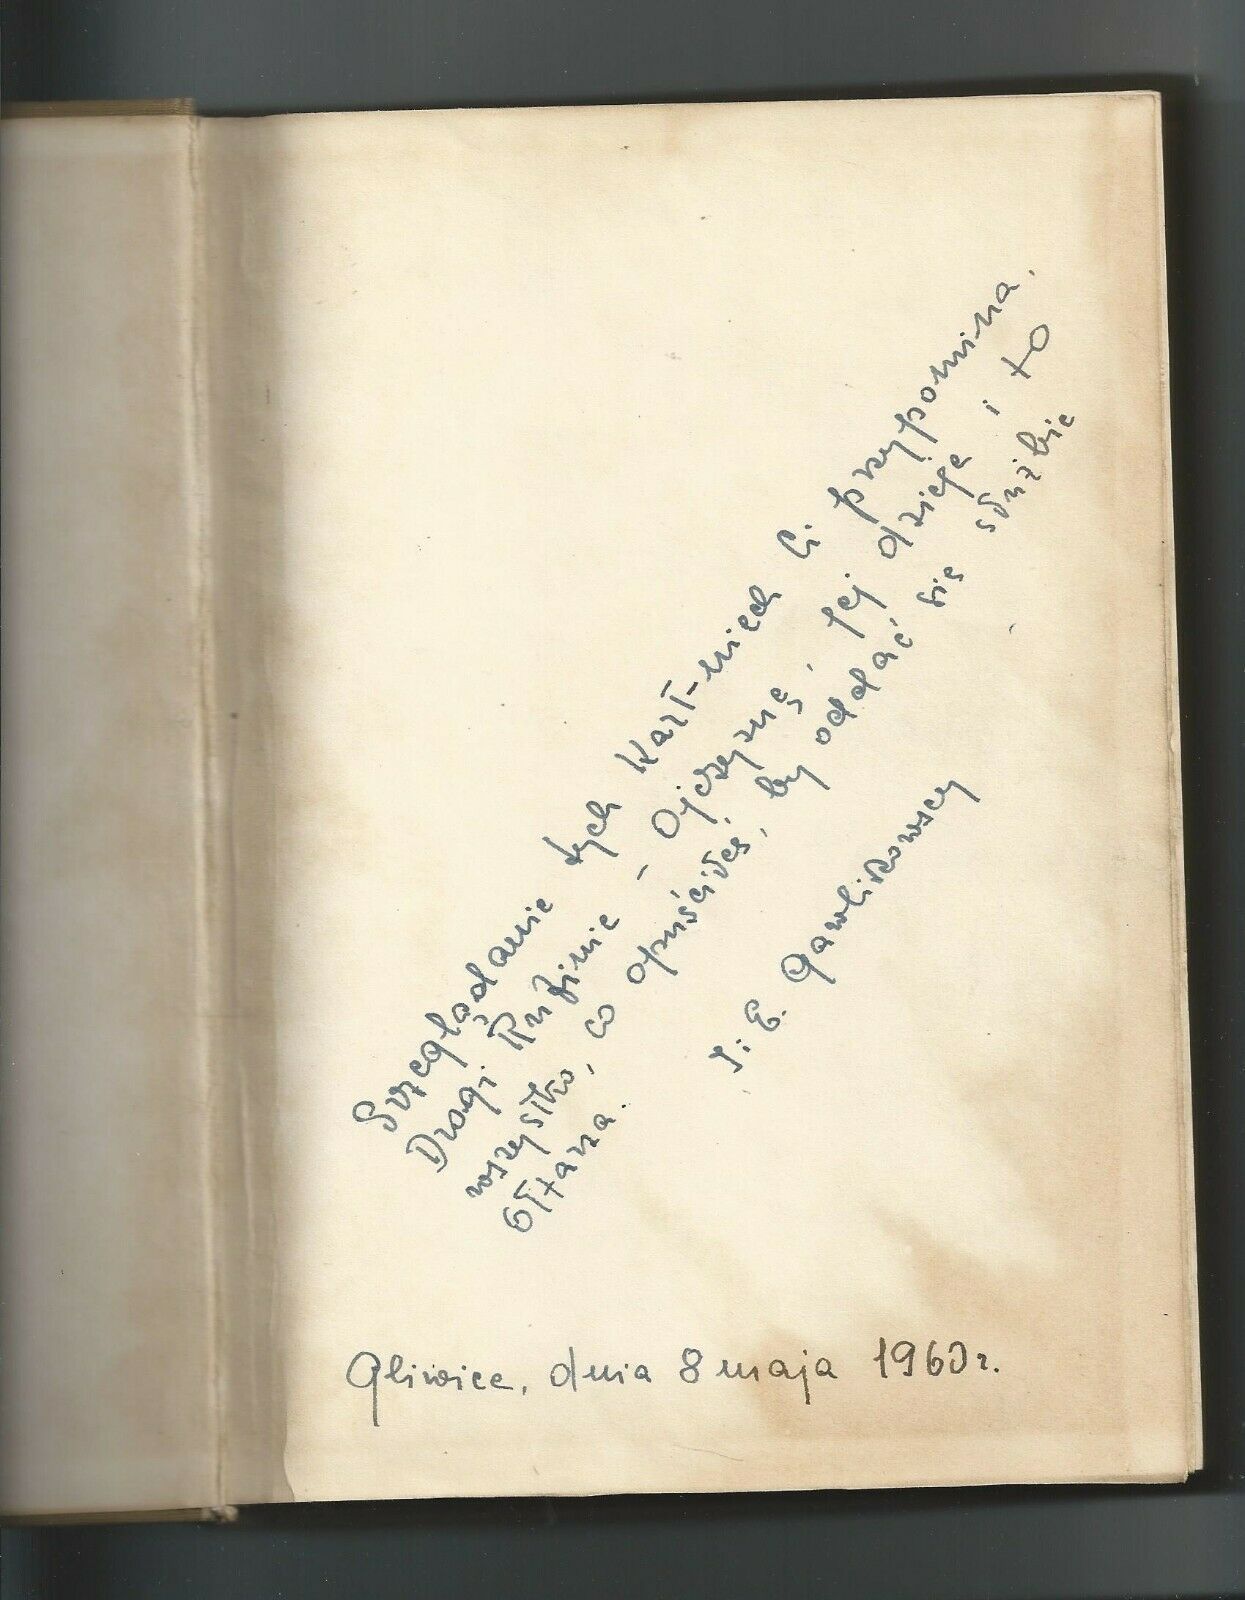 Przeglądanie tych kart-niech Ci przypomina.
Drogi Kuzinie - Ojczyznę, jej dzieje i to
wszystko, co opuściłeś, by oddać się służbie
ołtarza.
J. E. Gawlikowscy
Gliwice, dnia 8 maja 1960 r.